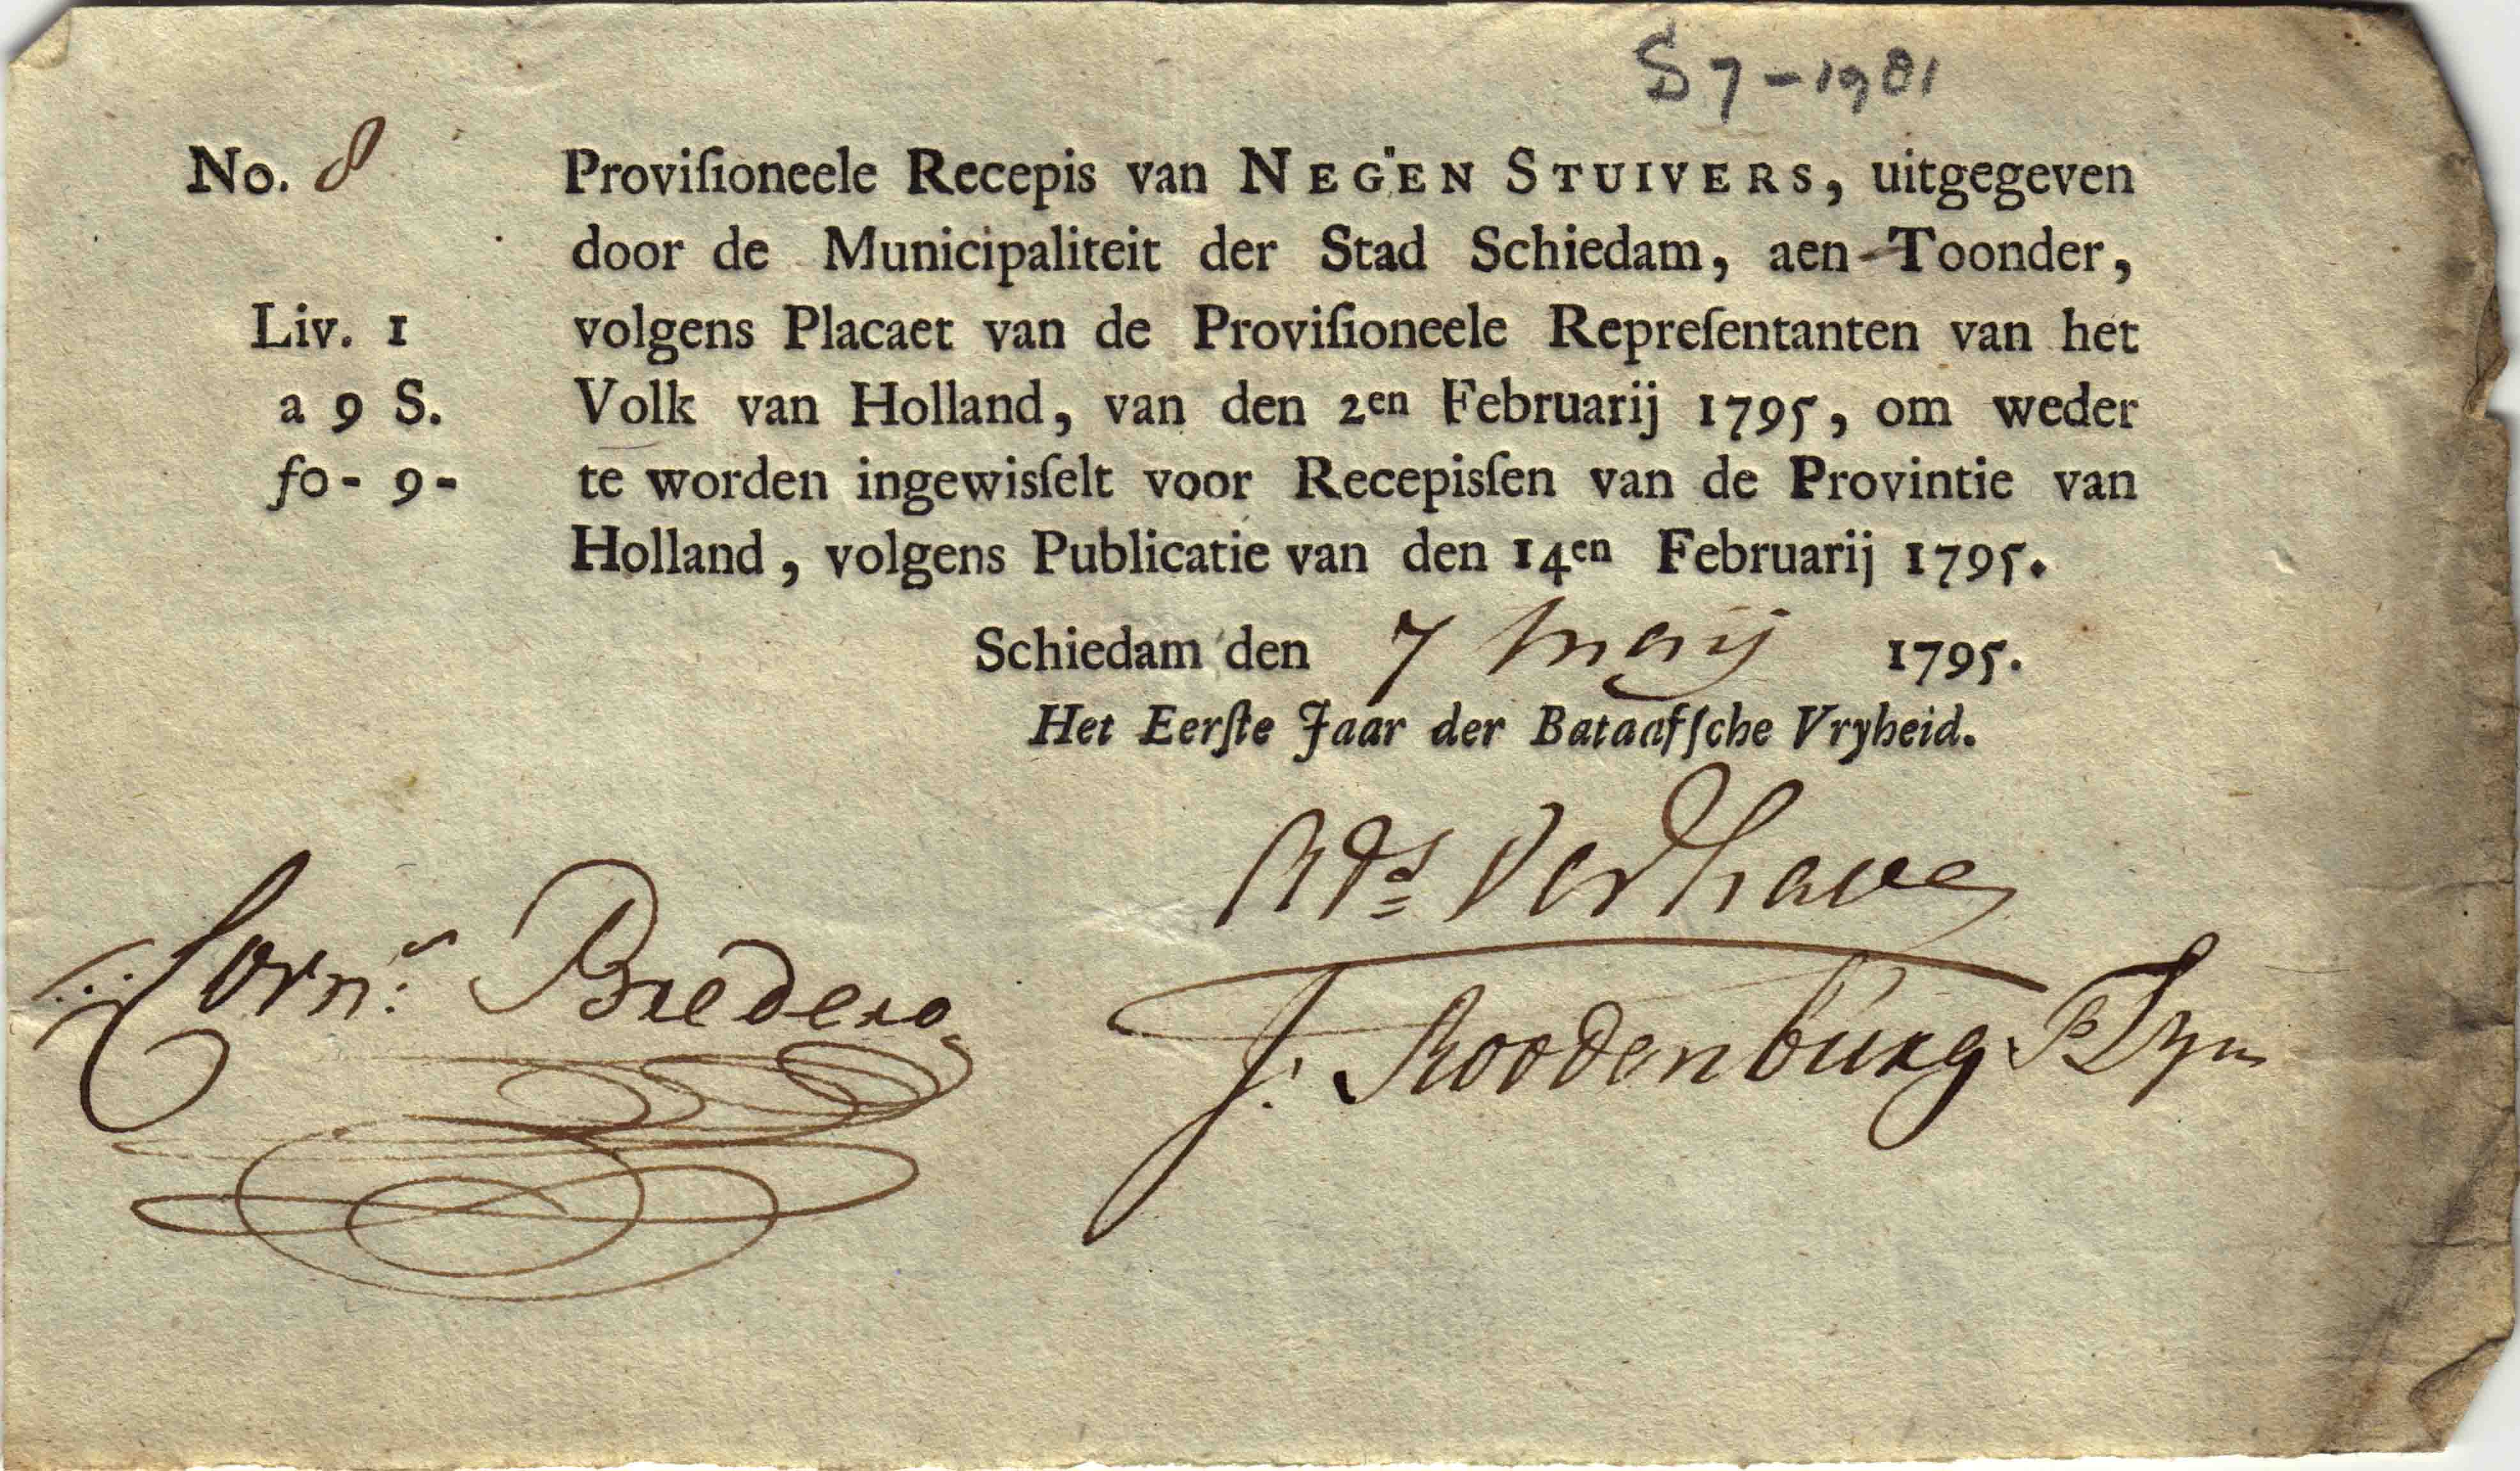 S 7 - 1981
No. 8
Proviſioneele Recepis van NEGEN STUIVERS, uitgegeven
door de Municipaliteit der Stad Schiedam, aen Toonder,
Liv. 1
volgens Placaet van de Proviſioneele Repreſentanten van het
a 9 S.
Volk van Holland, van den 2en Februarij 1795, om weder
fo - 9 -
te worden ingewisſelt voor Recepisſen van de Provintie van
Holland, volgens Publicatie van den 14en Februarij 1795.
Schiedam den 7 Meij 1795.
Het Eerſte Jaar der Bataafſche Vryheid.
Verhave
Corns: Bredero
J: Roodenburg